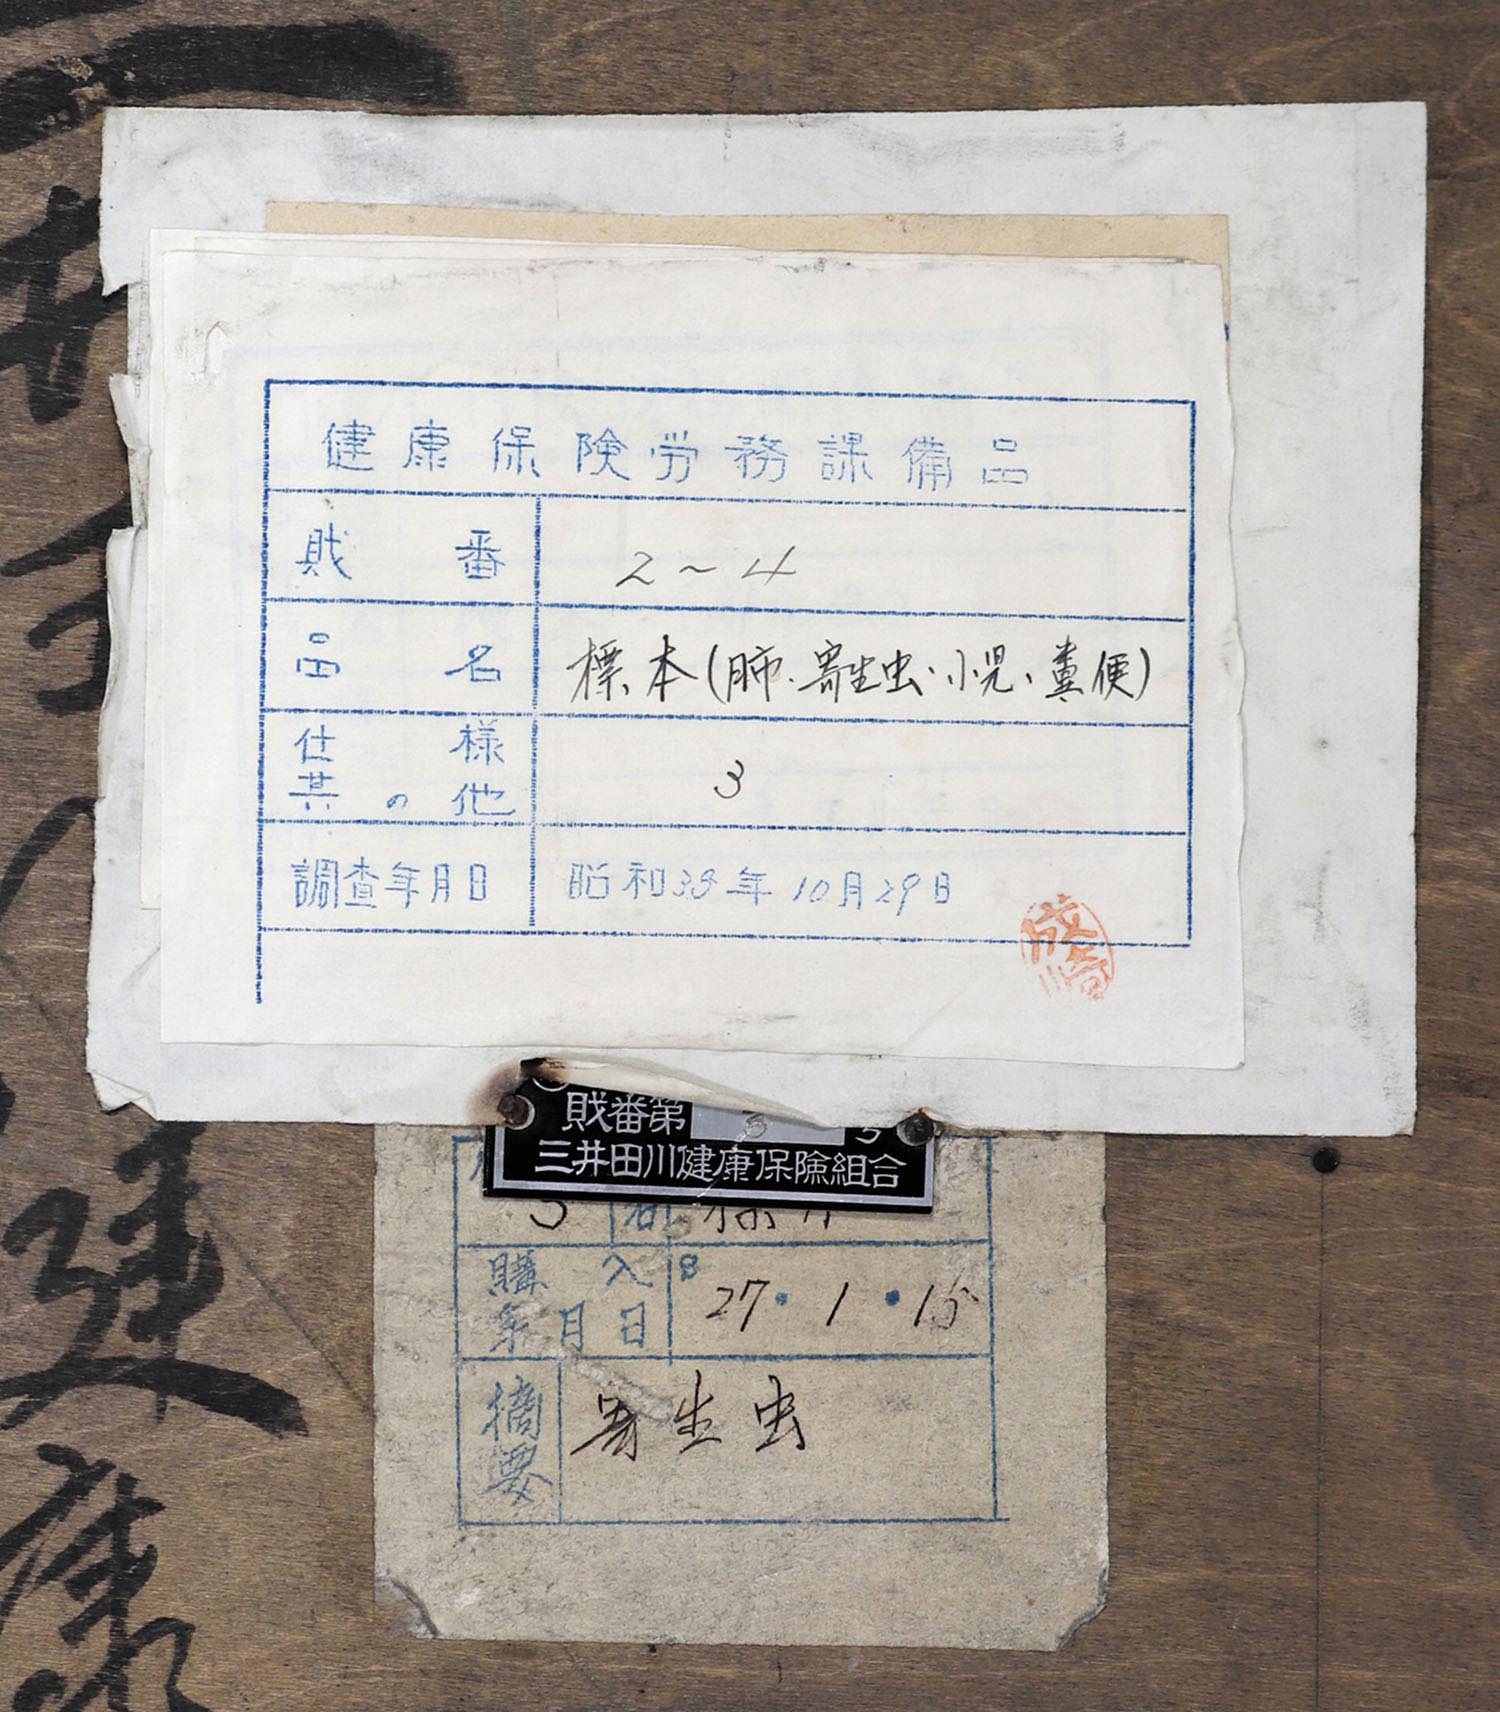 健康保険労務課備品
財番 2～4
品名 標本(肺、寄生虫・小児、糞便)
仕様
其の他 3
調査年月日 昭和38年10月29日
財番第 3
三井田川健康保険組合
3 名 標本
購入
年月日 27・1・15
摘要 寄生虫
健康